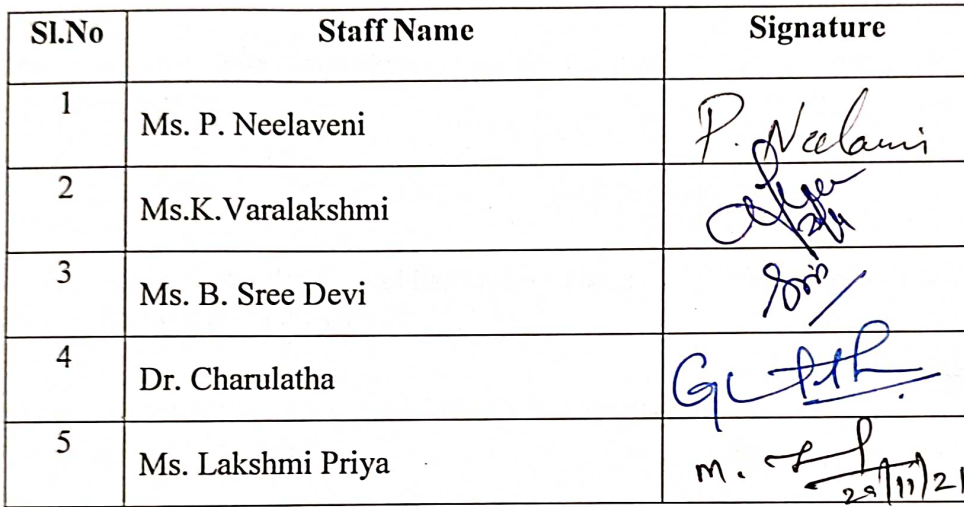 Sl.No Staff Name Signature
1 Ms. P. Neelaveni P. Neelaveni
2 Ms.K.Varalakshmi
3 Ms. B. Sree Devi
4 Dr. Charulatha
5 Ms. Lakshmi Priya m.
29/11/21